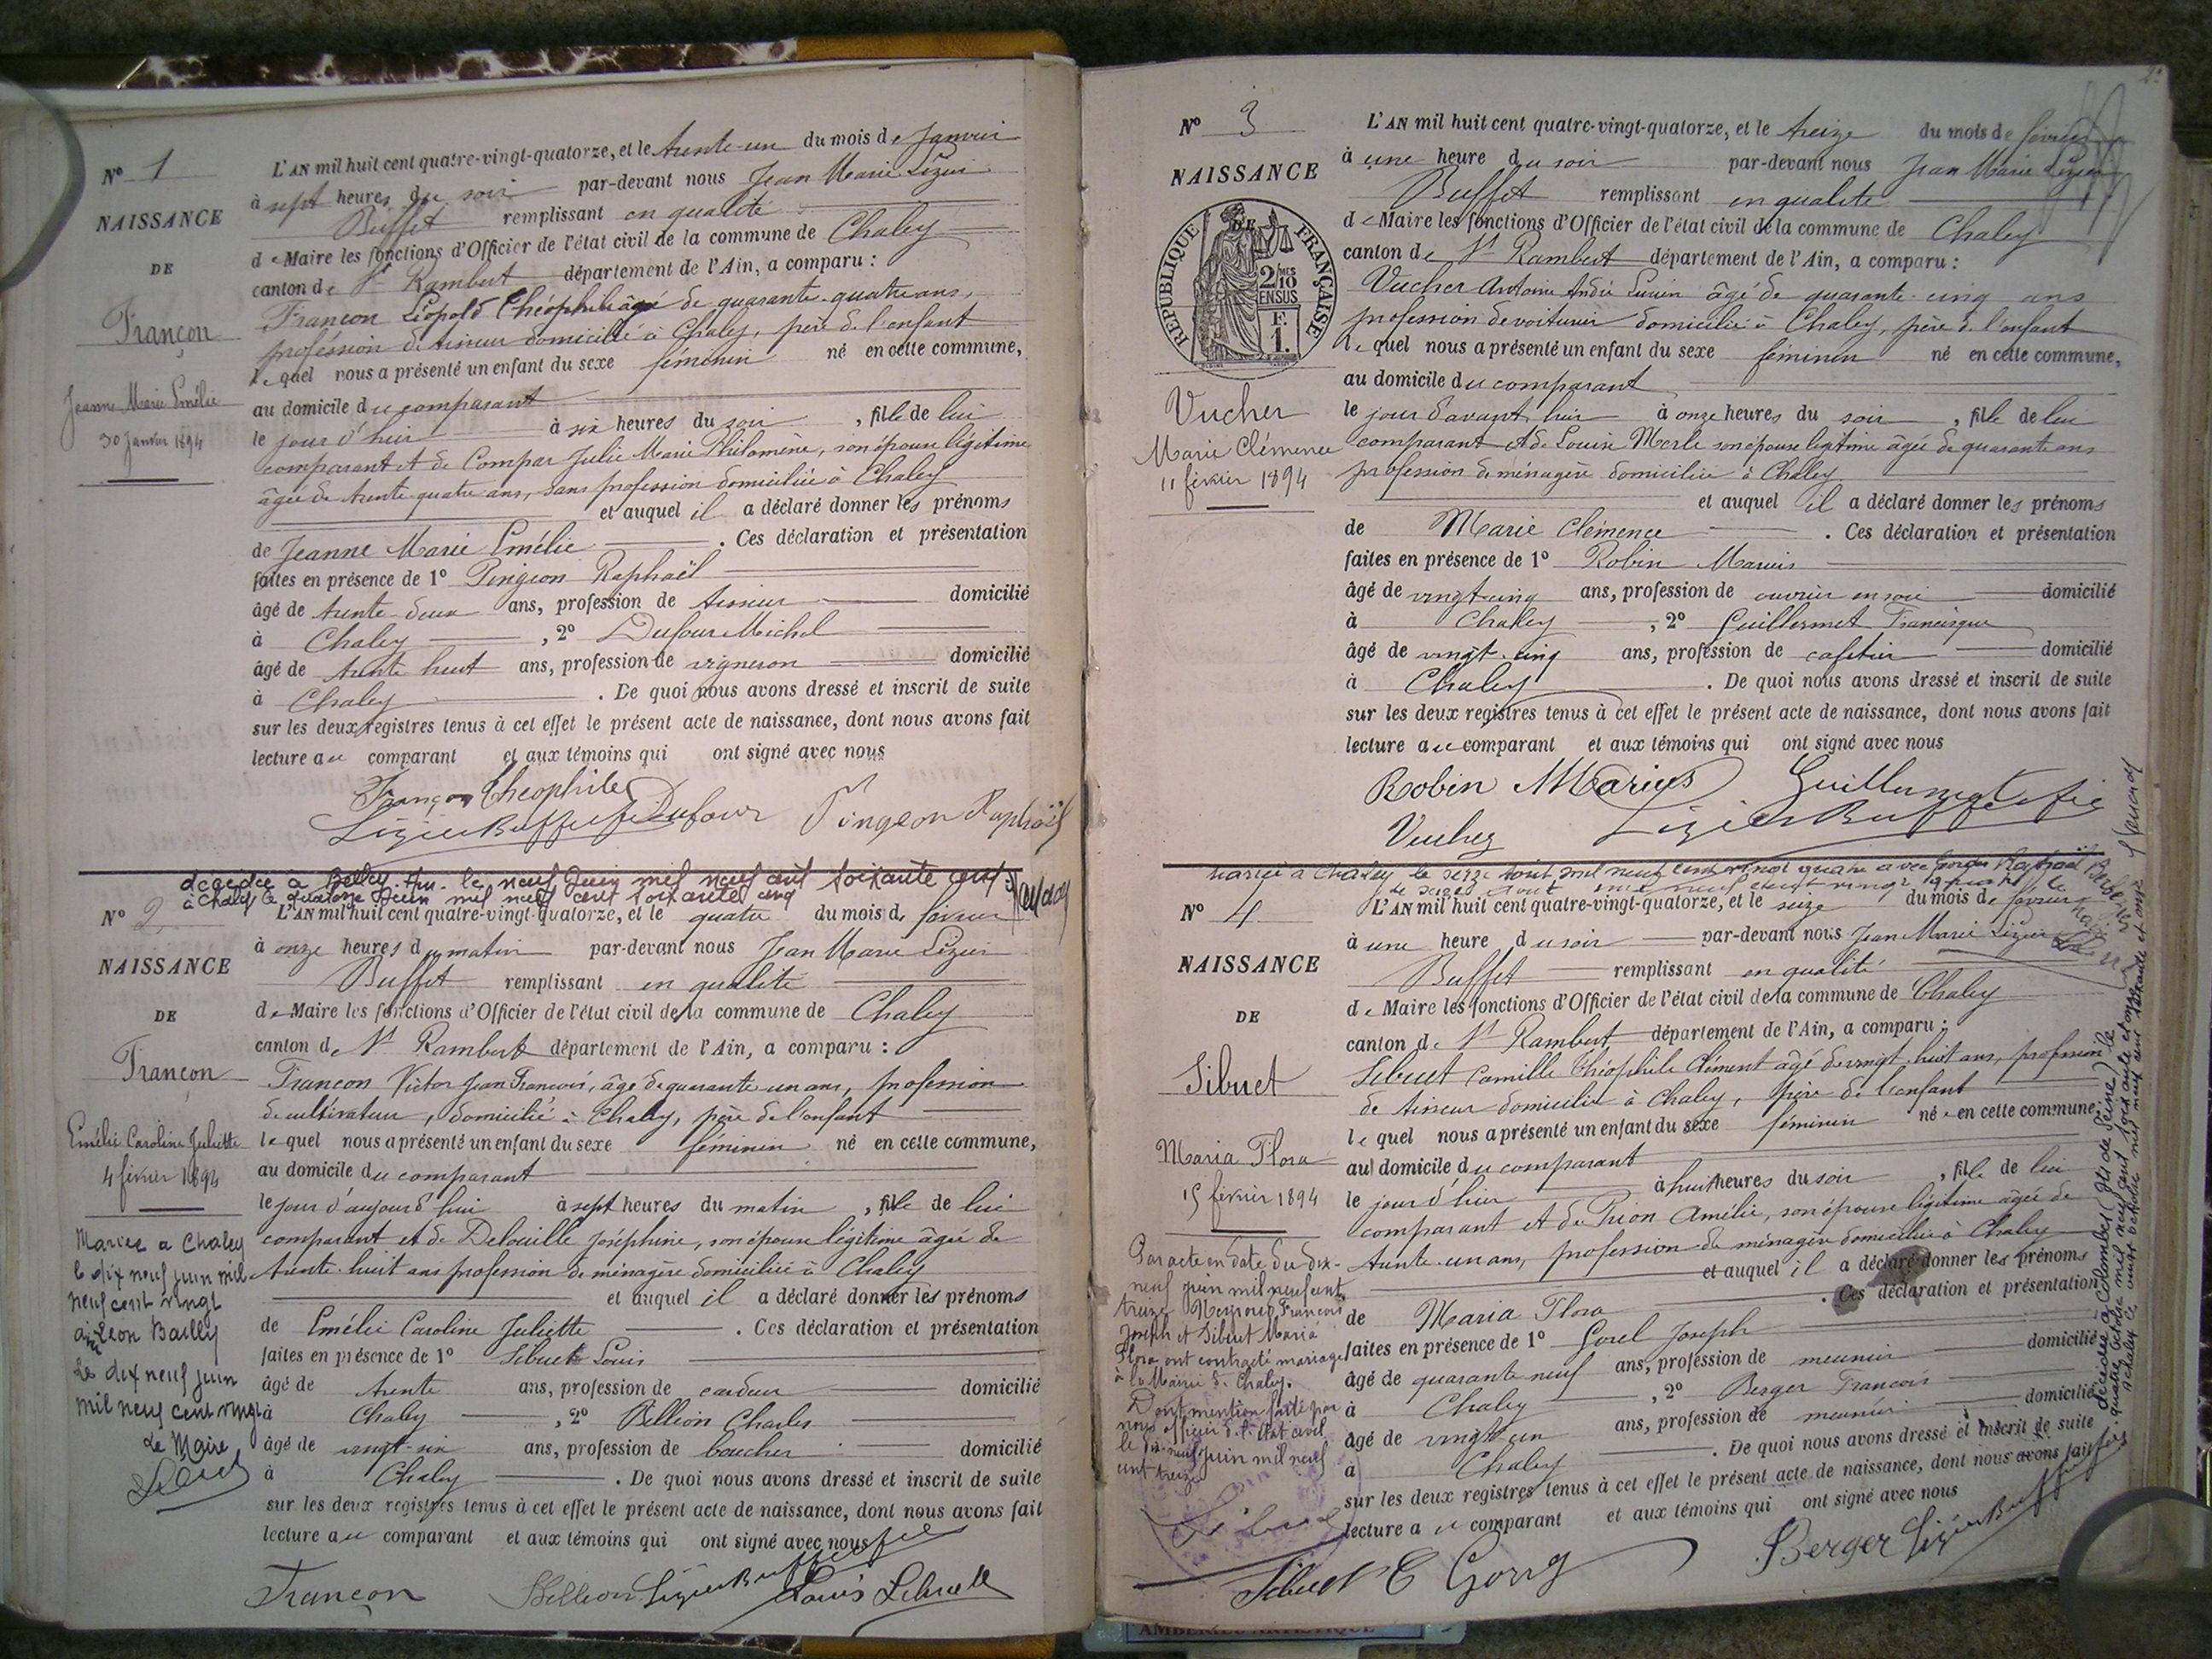 N° 1
NAISSANCE
DE
Françon
Jeanne Marie Emélie
30 Janvier 1894
L'AN mil huit cent quatre-vingt-quatorze, et le trente-un du mois de Janvier
à sept heures du soir par-devant nous Jean Marie Lizier
Buffet remplissant en qualité
de Maire les fonctions d'Officier de l'état civil de la commune de Chaley
canton de St Rambert département de l'Ain, a comparu :
Françon Léopold Théophile âgé de quarante-quatre ans,
profession de tisseur domicilié à Chaley, père de l'enfant
lequel nous a présenté un enfant du sexe féminin né en cette commune,
au domicile du comparant
le jour d'hier à six heures du soir, fille de lui
comparant et de Compar Julie Marie Philomène, son épouse légitime
âgée de trente quatre ans, sans profession domiciliée à Chaley
et auquel il a déclaré donner les prénoms
de Jeanne Marie Emélie . Ces déclaration et présentation
faites en présence de 1° Pingeon Raphaël
âgé de trente-deux ans, profession de tisseur domicilié
à Chaley , 2° Dufour Michel
âgé de trente huit ans, profession de vigneron domicilié
à Chaley . De quoi nous avons dressé et inscrit de suite
sur les deux registres tenus à cet effet le présent acte de naissance, dont nous avons fait
lecture au comparant et aux témoins qui ont signé avec nous
Françon Théophile
Lizier Buffet Dufour Pingeon Raphaël
décédée à Belley Ain le neuf Juin mil neuf cent soixante cinq
à Chaley le quatorze Juin mil neuf cent soixante cinq
N° 2
NAISSANCE
DE
Françon
Emélie Caroline Juliette
4 février 1894
Mariée a Chaley
le dix neuf juin mil
neuf cent vingt
avec Leon Bailly
Le dix neuf juin
mil neuf cent vingt
Le Maire
L'AN mil huit cent quatre-vingt-quatorze, et le quatre du mois de février
à onze heures du matin par-devant nous Jean Marie Lizier
Buffet remplissant en qualité
de Maire les fonctions d'Officier de l'état civil de la commune de Chaley
canton de St Rambert département de l'Ain, a comparu :
Françon Victor Jean François, âgé de quarante un ans, profession
de cultivateur, domicilié à Chaley, père de l'enfant
lequel nous a présenté un enfant du sexe féminin né en cette commune,
au domicile du comparant
le jour d'aujourd'hui à sept heures du matin, fille de lui
comparant et de Delouille Joséphine, son épouse légitime âgée de
trente-huit ans profession de ménagère domiciliée à Chaley
et auquel il a déclaré donner les prénoms
de Emélie Caroline Juliette . Ces déclaration et présentation
faites en présence de 1° Sibuet Louis
âgé de trente ans, profession de cardeur domicilié
à Chaley , 2° Bellion Charles
âgé de vingt-six ans, profession de boucher domicilié
à Chaley . De quoi nous avons dressé et inscrit de suite
sur les deux registres tenus à cet effet le présent acte de naissance, dont nous avons fait
lecture au comparant et aux témoins qui ont signé avec nous
Françon Bellion Lizier Buffet Louis Sibuet
N° 3
NAISSANCE
DE
RÉPUBLIQUE FRANÇAISE
2/10MES
EN SUS
F.
1.
Vucher
Marie Clémence
11 février 1894
L'AN mil huit cent quatre-vingt-quatorze, et le treize du mois de février
à une heure du soir par-devant nous Jean Marie Lizier
Buffet remplissant en qualité
de Maire les fonctions d'Officier de l'état civil de la commune de Chaley
canton de St Rambert département de l'Ain, a comparu :
Vucher Antoine André Lucien âgé de quarante-cinq ans
profession de voiturier domicilié à Chaley, père de l'enfant
lequel nous a présenté un enfant du sexe féminin né en cette commune,
au domicile du comparant
le jour d'avant hier à onze heures du soir, fille de lui
comparant et de Louise Merle son épouse légitime âgée de quarante ans
profession de ménagère domiciliée à Chaley
et auquel il a déclaré donner les prénoms
de Marie Clémence . Ces déclaration et présentation
faites en présence de 1° Robin Marius
âgé de vingt-cinq ans, profession de ouvrier en soie domicilié
à Chaley , 2° Guillermet Francisque
âgé de vingt-cinq ans, profession de cafetier domicilié
à Chaley . De quoi nous avons dressé et inscrit de suite
sur les deux registres tenus à cet effet le présent acte de naissance, dont nous avons fait
lecture au comparant et aux témoins qui ont signé avec nous
Robin Marius Guillermet
Vucher Lizier Buffet
Mariée à Chaley le seize août mil neuf cent vingt quatre avec Raphaël
le seize août mil neuf cent vingt quatre
N° 4
NAISSANCE
DE
Sibuet
Maria Flora
15 février 1894
Par acte en date du dix-
neuf juin mil neuf cent
treize Neyroud François
Joseph et Sibuet Maria
Flora ont contracté mariage
à la Mairie de Chaley.
Dont mention faite par
nous officier de l'état civil
le dix-neuf juin mil neuf
cent treize
L'AN mil huit cent quatre-vingt-quatorze, et le seize du mois de février
à une heure du soir par-devant nous Jean Marie Lizier
Buffet remplissant en qualité
de Maire les fonctions d'Officier de l'état civil de la commune de Chaley
canton de St Rambert département de l'Ain, a comparu :
Sibuet Camille Théophile Clément âgé de vingt-huit ans, profession
de tisseur domicilié à Chaley, père de l'enfant
lequel nous a présenté un enfant du sexe féminin né en cette commune
au domicile du comparant
le jour d'hier à huit heures du soir, fille de lui
comparant et de Prion Amélie, son épouse légitime âgée de
trente-un ans, profession de ménagère domiciliée à Chaley
et auquel il a déclaré donner les prénoms
de Maria Flora . Ces déclaration et présentation
faites en présence de 1° Joseph
âgé de quarante neuf ans, profession de meunier domicilié
à Chaley , 2° Berger François
âgé de vingt-un ans, profession de meunier domicilié
à Chaley . De quoi nous avons dressé et inscrit de suite
sur les deux registres tenus à cet effet le présent acte de naissance, dont nous avons fait
lecture au comparant et aux témoins qui ont signé avec nous
Sibuet C Berger Lizier Buffet
AMBÉRIEU ARTISTIQUE